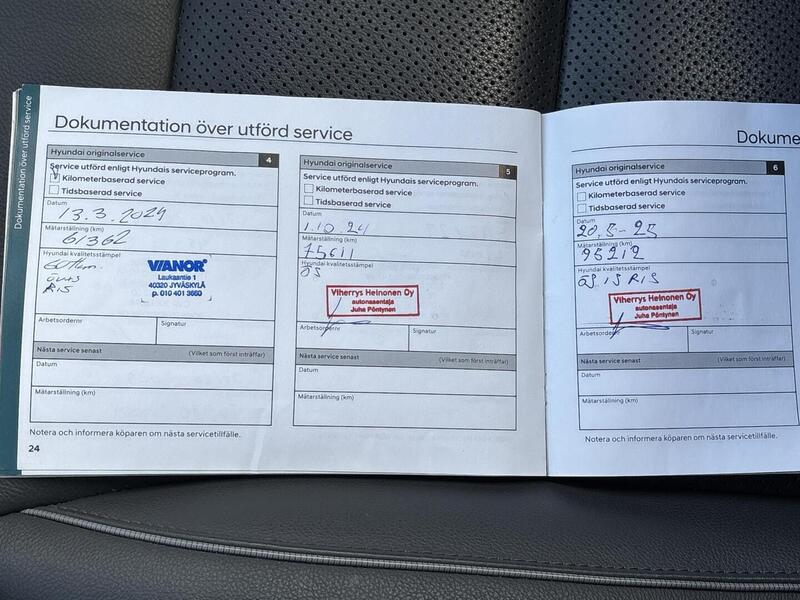 Dokumentation över utförd service
Dokumentation över utförd service
Hyundai originalservice
4
Service utförd enligt Hyundais serviceprogram.
Kilometerbaserad service
Tidsbaserad service
Datum
13.3.2024
Mätarställning (km)
61362
Hyundai kvalitetsstämpel
RIS
VIANOR
Laukaantie 1
40320 JYVÄSKYLÄ
p. 010 401 3660
Arbetsordernr
Signatur
Nästa service senast
(Vilket som först inträffar)
Datum
Mätarställning (km)
Notera och informera köparen om nästa servicetillfälle.
24
Hyundai originalservice
5
Service utförd enligt Hyundais serviceprogram.
Kilometerbaserad service
Tidsbaserad service
Datum
1.10.24
Mätarställning (km)
75611
Hyundai kvalitetsstämpel
ÖS
Viherrys Heinonen Oy
autonasentaja
Juha Pöntynen
Arbetsordernr
Signatur
Nästa service senast
(Vilket som först inträffar)
Datum
Mätarställning (km)
Dokume
Hyundai originalservice
6
Service utförd enligt Hyundais serviceprogram.
Kilometerbaserad service
Tidsbaserad service
Datum
20.5-25
Mätarställning (km)
95212
Hyundai kvalitetsstämpel
ÖS RIS
Viherrys Heinonen Oy
autonasentaja
Juha Pöntynen
Arbetsordernr
Signatur
Nästa service senast
(Vilket som först inträffar)
Datum
Mätarställning (km)
Notera och informera köparen om nästa servicetillfälle.